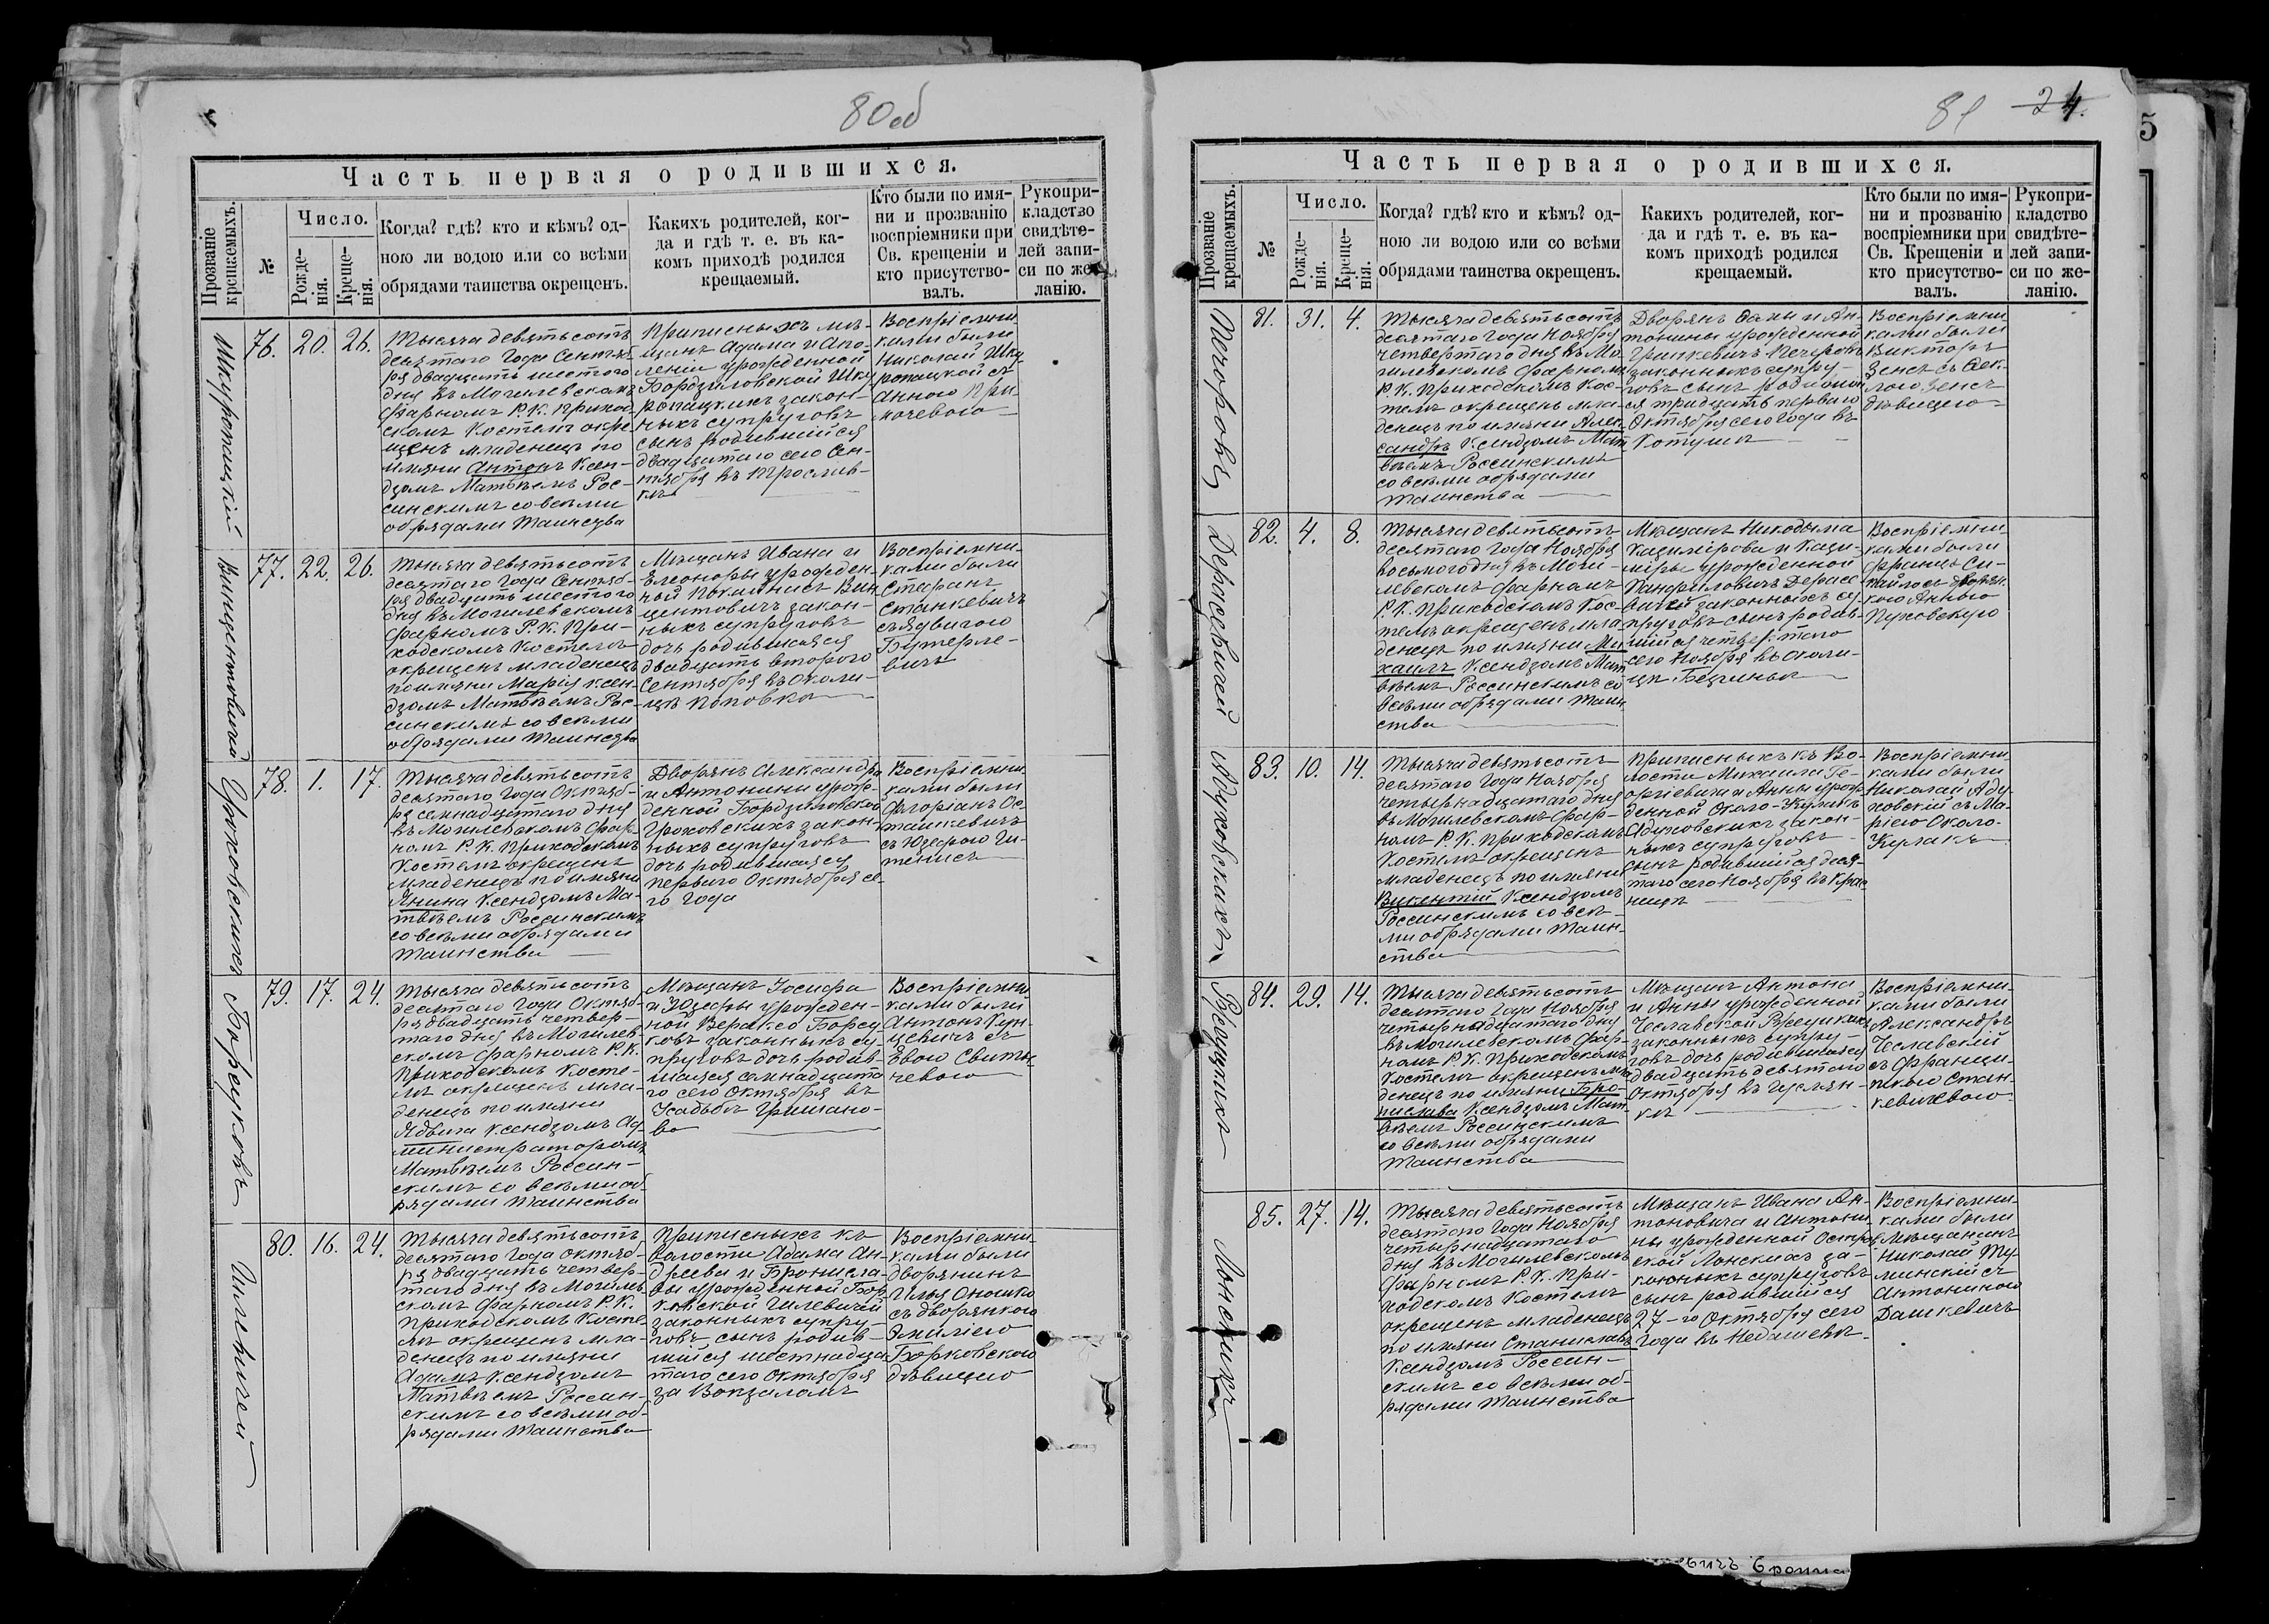 80об
Часть первая о родившихся.
Прозваніе крещаемыхъ.
№
Число.
Рожденія.
Крещенія.
Когда? гдѣ? кто и кѣмъ? од-
ною ли водою или со всѣми
обрядами таинства окрещенъ.
Какихъ родителей, ког-
да и гдѣ т. е. въ ка-
комъ приходѣ родился
крещаемый.
Кто были по имя-
ни и прозванію
воспріемники при
Св. Крещеніи и
кто присутство-
валъ.
Рукопри-
кладство
свидѣте-
лей запи-
си по же-
ланію.
Шкуропацкій
76. 20. 26.
Тысяча девятьсотъ
десятаго Года Сентяб-
ря двадцать шестого
дня въ Могилевскомъ
Фарномъ Р. К. Приход-
скомъ Костелѣ окре-
щенъ младенецъ по
имяни Антонъ Ксен-
дзомъ Матвѣемъ Рос-
синскимъ со всѣми
обрядами Таинства
Приписныхъ мѣ-
щанъ Адама и Апо-
леніи урожденной
Бордзиловской Шку-
ропацкихъ закон-
ныхъ супруговъ
сынъ родившійся
двадцатаго сего Сен-
тября въ
Воспріемни-
ками были
Николай Шку-
ропацкой съ
Анною При-
мачевого
Винцентовичей
77. 22. 26.
Тысяча девятьсотъ
десятаго Года Сентяб-
ря двадцать шестого
дня въ Могилевскомъ
Фарномъ Р. К. При-
ходскомъ Костелѣ
окрещенъ младенецъ
по имяни Марія Ксен-
дзомъ Матвѣемъ Рос-
синскимъ со всѣми
обрядами Таинства
Мѣщанъ Ивана и
Елеоноры урожден-
ной Вин-
центовичъ закон-
ныхъ супруговъ
дочь родившаяся
двадцать второго
Сентября въ Околи-
цѣ Поповка
Воспріемни-
ками были
Стефанъ
Станкевичъ
съ Ядвигою
Бутерле-
вичъ
Гроховскихъ
78. 1. 17.
Тысяча девятьсотъ
десятаго Года Октяб-
ря семнадцатаго дня
въ Могилевскомъ Фар-
номъ Р. К. Приходскомъ
Костелѣ окрещенъ
младенецъ по имяни
Янина Ксендзомъ Ма-
твѣемъ Россинскимъ
со всѣми обрядами
Таинства
Дворянъ Александра
и Антонины урож-
денной Бордзиловской
Гроховскихъ закон-
ныхъ супруговъ
дочь родившаяся
перваго Октября се-
го Года
Воспріемни-
ками были
Флоріанъ Ос-
ташкевичъ
съ Юзефою Ги-
тенисъ
Борсуковъ
79. 17. 24.
Тысяча девятьсотъ
десятаго Года Октяб-
ря двадцать четвер-
таго дня въ Могилев-
скомъ Фарномъ Р. К.
Приходскомъ Косте-
лѣ окрещенъ мла-
денецъ по имяни
Ядвига Ксендзомъ Ад-
министраторомъ
Матвѣемъ Россин-
скимъ со всѣми об-
рядами Таинства
Мѣщанъ Іосифа
и Юзефы урожден-
ной Вераксо Борсу-
ковъ законныхъ су-
пруговъ дочь родив-
шаяся семнадцата-
го сего Октября въ
Усадьбѣ Гришано-
во
Воспріемни-
ками были
Антонъ Кун-
цевичъ съ
Евою Свиты-
чевого
Гилевичей
80. 16. 24.
Тысяча девятьсотъ
десятаго Года Октяб-
ря двадцать четвер-
таго дня въ Могилев-
скомъ Фарномъ Р. К.
Приходскомъ Косте-
лѣ окрещенъ мла-
денецъ по имяни
Адамъ Ксендзомъ
Матвѣемъ Россин-
скимъ со всѣми об-
рядами Таинства
Приписныхъ къ
волости Адама Ан-
дреева и Бронисла-
вы урожденной Бор-
ковской Гилевичей
законныхъ супру-
говъ сынъ родив-
шійся шестнадца-
таго сего Октября
за Вокзаломъ
Воспріемни-
ками были
дворянинъ
Илья Оношко
съ дворянкою
Эмиліею
Борковского
дѣвицею
81 24.
Часть первая о родившихся.
Прозваніе крещаемыхъ.
№
Число.
Рожденія.
Крещенія.
Когда? гдѣ? кто и кѣмъ? од-
ною ли водою или со всѣми
обрядами таинства окрещенъ.
Какихъ родителей, ког-
да и гдѣ т. е. въ ка-
комъ приходѣ родился
крещаемый.
Кто были по имя-
ни и прозванію
воспріемники при
Св. Крещеніи и
кто присутство-
валъ.
Рукопри-
кладство
свидѣте-
лей запи-
си по же-
ланію.
81. 31. 4.
Тысяча девятьсотъ
десятаго Года Ноября
четвертаго дня въ Мо-
гилевскомъ Фарномъ
Р. К. Приходскомъ Кос-
телѣ окрещенъ мла-
денецъ по имяни Алек-
сандръ Ксендзомъ Мат-
вѣемъ Россинскимъ
со всѣми обрядами
Таинства
Дворянъ и Ан-
тонины урожденной
законныхъ супру-
говъ сынъ родивший-
ся тридцать перваго
Октября сего Года въ
Воспріемни-
ками были
Викторъ
Зенсъ съ
Зенсъ
дѣвицею
Держевичей
82. 4. 8.
Тысяча девятьсотъ
десятаго Года Ноября
восьмого дня въ Моги-
левскомъ Фарномъ
Р. К. Приходскомъ Кос-
телѣ окрещенъ мла-
денецъ по имяни Ми-
хаилъ Ксендзомъ Мат-
вѣемъ Россинскимъ со
всѣми обрядами Таин-
ства
Мѣщанъ Никодыма
Казимірова и Кази-
міры урожденной
Панфиловичъ Держе-
вичей законныхъ су-
пруговъ сынъ родив-
шійся четвертаго
сего Ноября въ Околи-
цѣ
Воспріемни-
ками были
Францъ Си-
пайлосъ дворян-
кою Анною
Пуховскую
Адуховскихъ
83. 10. 14.
Тысяча девятьсотъ
десятаго Года Ноября
четырнадцатаго дня
въ Могилевскомъ Фар-
номъ Р. К. Приходскомъ
Костелѣ окрещенъ
младенецъ по имяни
Викентій Ксендзомъ
Россинскимъ со всѣ-
ми обрядами Таин-
ства
Приписныхъ къ Во-
лости Михаила Ге-
оргіевича и Анны урож-
денной Около-Кулакъ
Адуховскихъ закон-
ныхъ супруговъ
сынъ родившійся деся-
таго сего Ноября въ Крас-
ницѣ
Воспріемни-
ками были
Николай Аду-
ховскій съ Ма-
ріею Около-
Кулакъ
Ржеуцкихъ
84. 29. 14.
Тысяча девятьсотъ
десятаго Года Ноября
четырнадцатаго дня
въ Могилевскомъ Фар-
номъ Р. К. Приходскомъ
Костелѣ окрещенъ мла-
денецъ по имяни Бро-
нислава Ксендзомъ Мат-
вѣемъ Россинскимъ
со всѣми обрядами
Таинства
Мѣщанъ Антона
и Анны урожденной
Чеславской Ржеуцкихъ
законныхъ супру-
говъ дочь родившаяся
двадцать девятаго
Октября въ
Воспріемни-
ками были
Александръ
Чеславскій
съ Францишкою Стан-
кевичевого
Лонскихъ
85. 27. 14.
Тысяча девятьсотъ
десятаго Года Ноября
четырнадцатаго
дня въ Могилевскомъ
Фарномъ Р. К. При-
ходскомъ Костелѣ
окрещенъ младенецъ
по имяни Станиславъ
Ксендзомъ Россин-
скимъ со всѣми об-
рядами Таинства
Мѣщанъ Ивана Ан-
тоновича и Антони-
ны урожденной
Лонскихъ за-
конныхъ супруговъ
сынъ родившійся
27-го Октября сего
Года въ Недашевѣ
Воспріемни-
ками были
Мѣщанинъ
Николай Ту-
минскій съ
Антониною
Дашкевичъ
5